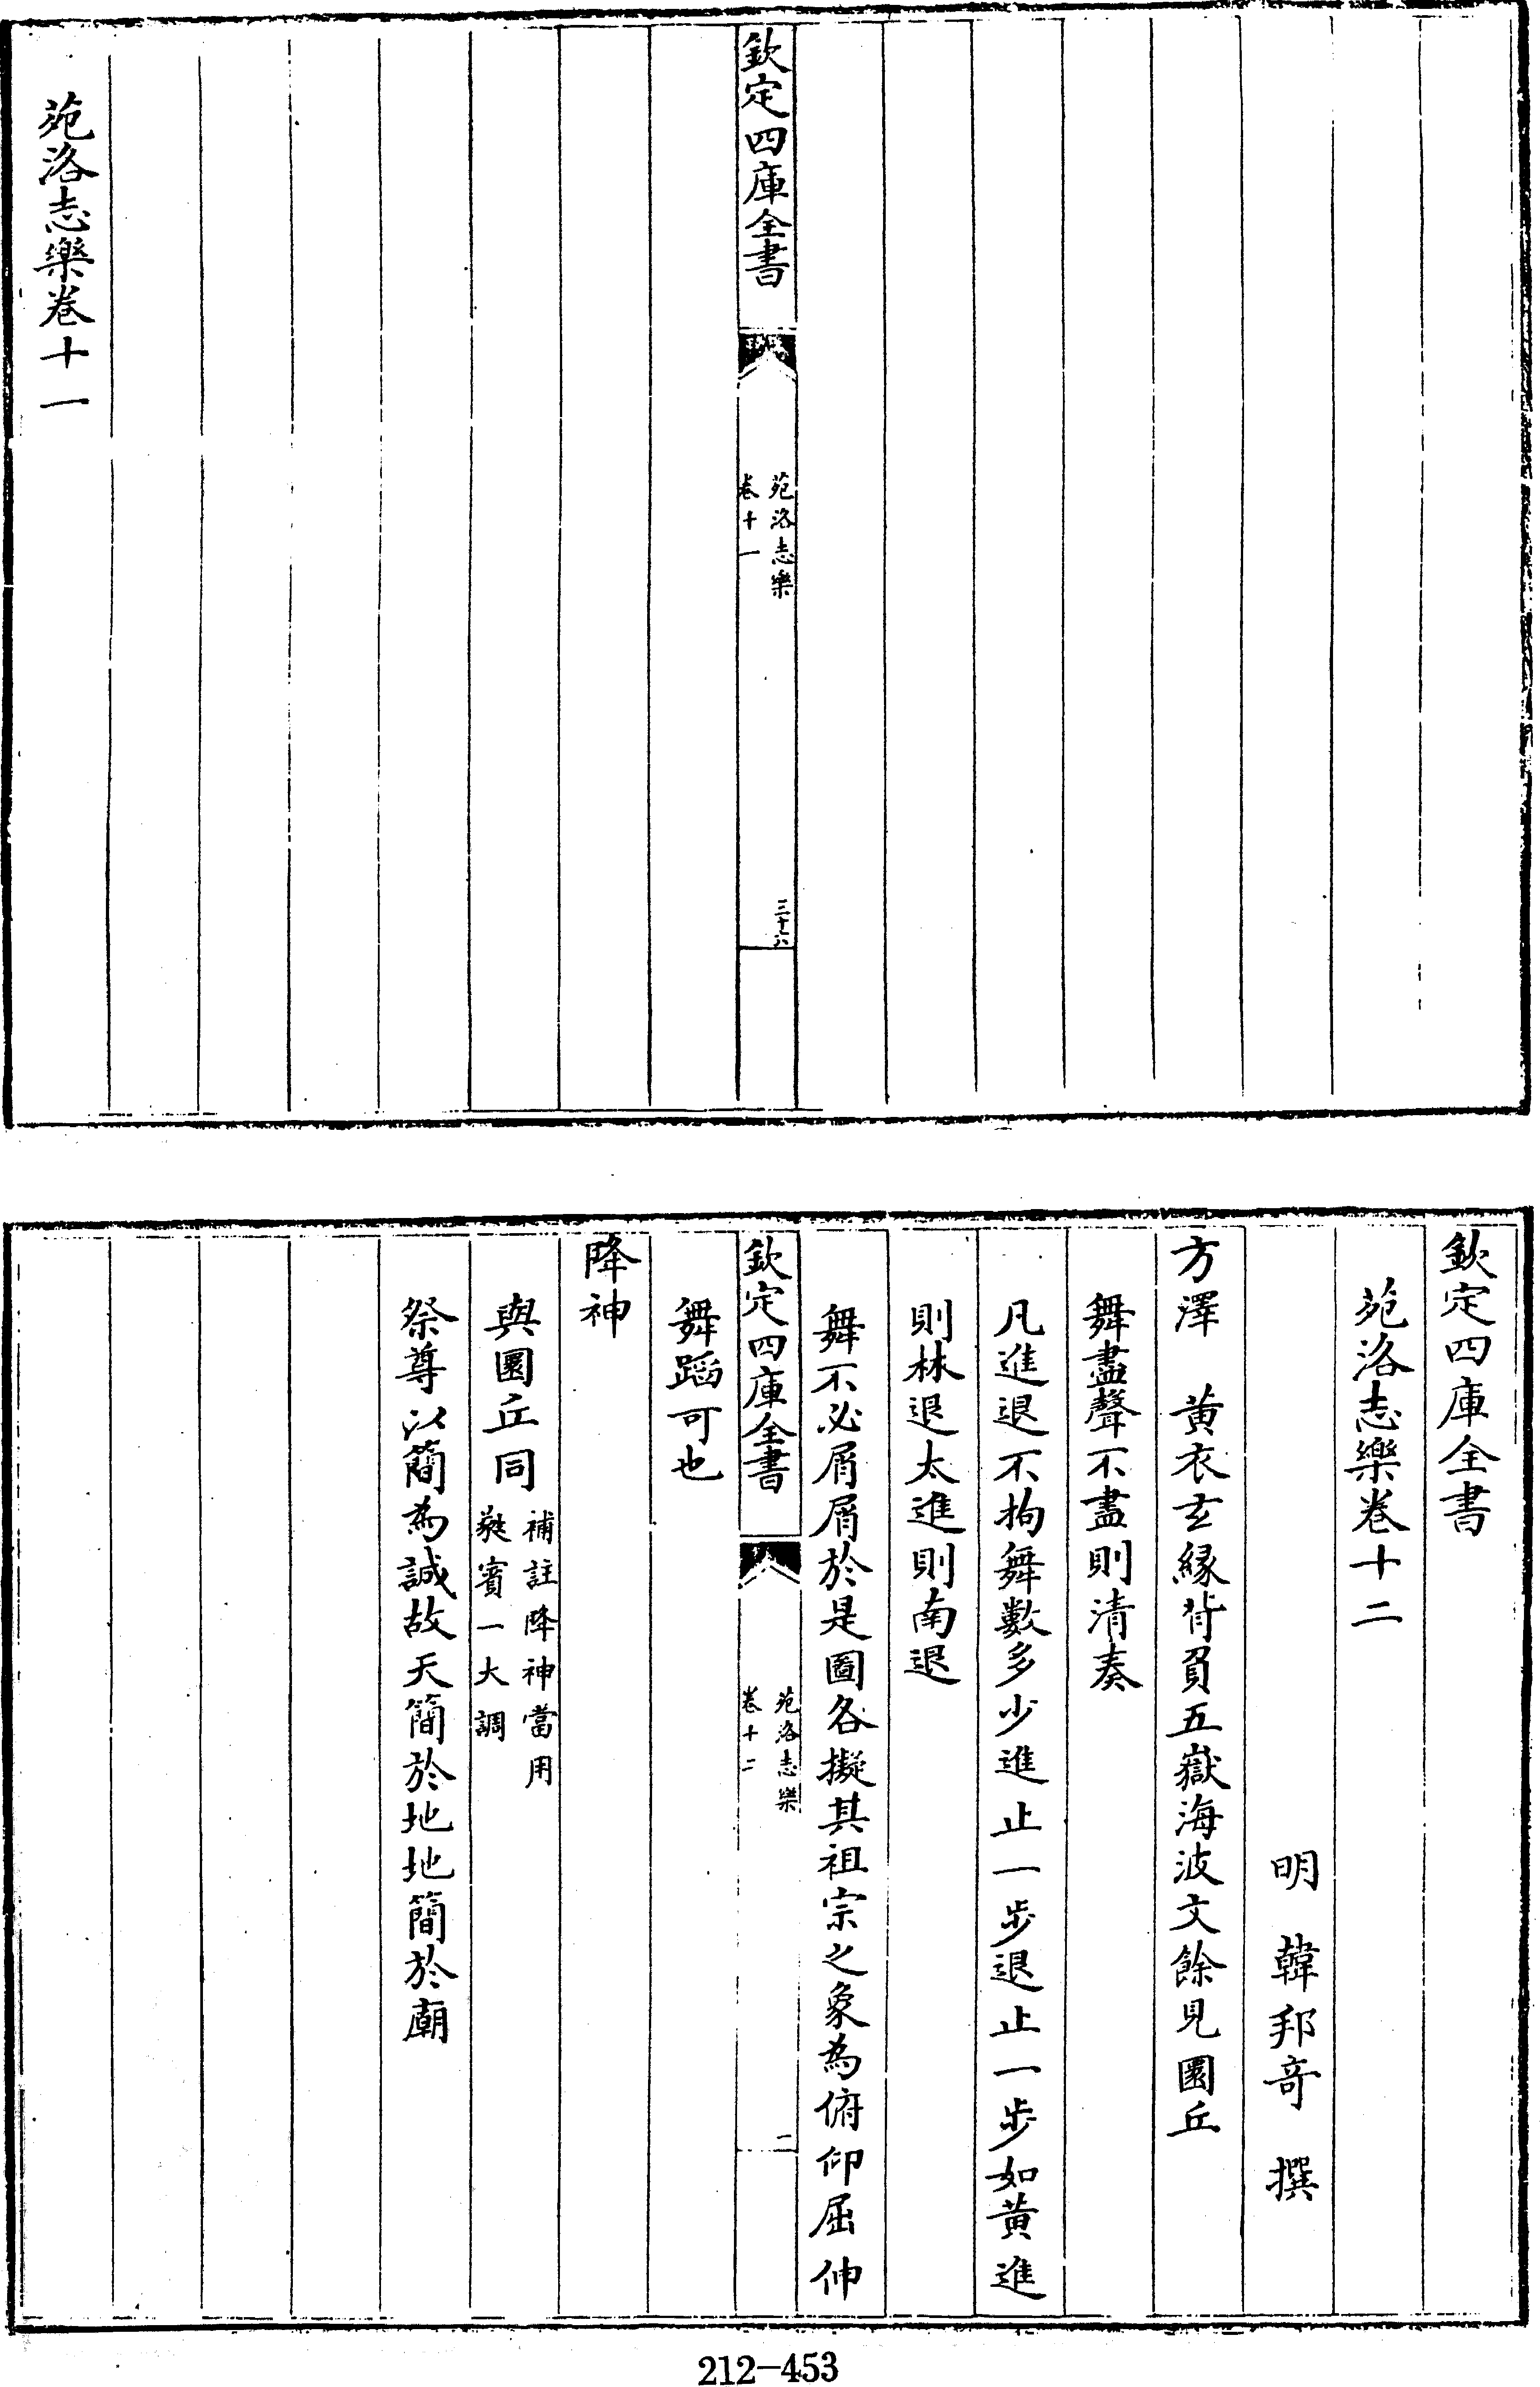 欽定四庫全書
苑洛志樂
卷十一
三十六
苑洛志樂卷十一
欽定四庫全書
苑洛志樂卷十二
明 韓邦奇 撰
方澤 黄衣玄緣背負五嶽海波文餘見圜丘
舞盡聲不盡則清奏
凡進退不拘舞數多少進止一步退止一步如黄進
則林退太進則南退
舞不必屑屑於是圖各擬其祖宗之象為俯仰屈伸
欽定四庫全書
苑洛志樂
卷十二
一
舞蹈可也
降神
與圜丘同補註降神當用
蕤賓一大調
祭尊以簡為誠故天簡於地地簡於廟
212-453